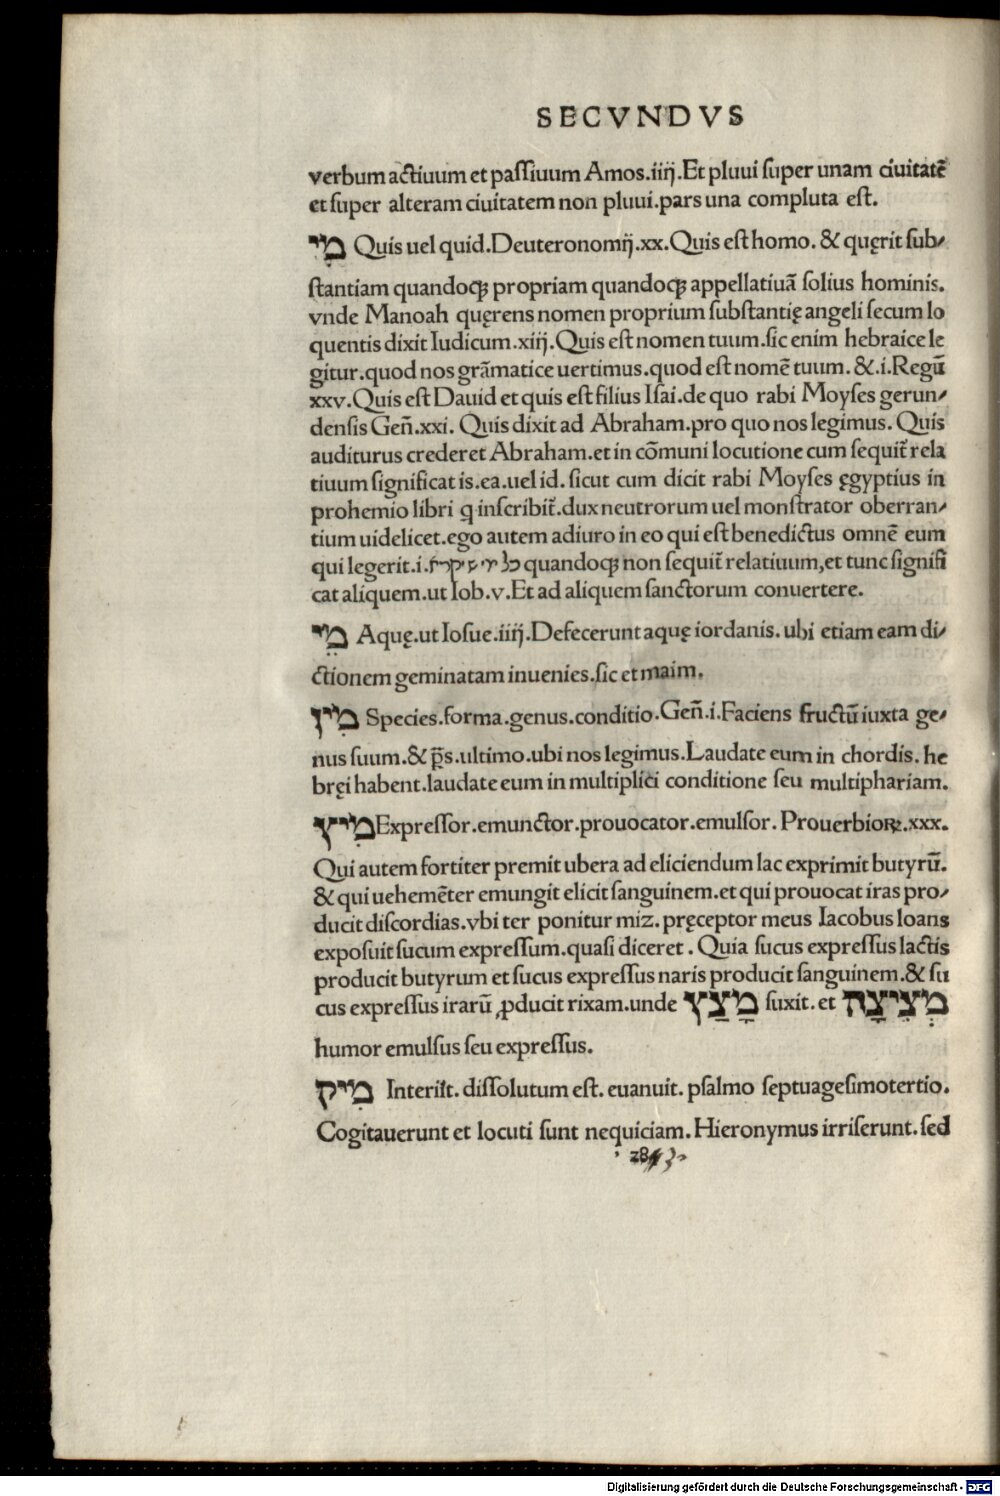 SECVNDVS
verbum actiuum et passiuum Amos.iiij.Et pluui super unam ciuitatē
et super alteram ciuitatem non pluui.pars una compluta est.
מִי Quis uel quid.Deuteronomij.xx.Quis est homo. & quęrit sub-
stantiam quandoqꝫ propriam quandoqꝫ appellatiuā solius hominis.
vnde Manoah quęrens nomen proprium substantię angeli secum lo
quentis dixit Iudicum.xiij.Quis est nomen tuum.sic enim hebraice le
gitur.quod nos grāmatice uertimus.quod est nomē tuum. &.i.Regū
xxv.Quis est Dauid et quis est filius Isai.de quo rabi Moyses gerun-
densis Geñ.xxi. Quis dixit ad Abraham.pro quo nos legimus. Quis
auditurus crederet Abraham.et in cōmuni locutione cum sequit̃ rela
tiuum significat is.ea.uel id. sicut cum dicit rabi Moyses ęgyptius in
prohemio libri q inscribit̃.dux neutrorum uel monstrator oberran-
tium uidelicet.ego autem adiuro in eo qui est benedictus omnē eum
qui legerit.i. quandoqꝫ non sequit̃ relatiuum,et tunc signifi
cat aliquem.ut Iob.v.Et ad aliquem sanctorum conuertere.
מֵי Aquę.ut Iosue.iiij.Defecerunt aquę iordanis. ubi etiam eam di-
ctionem geminatam inuenies.sic et maim.
מִין Species.forma.genus.conditio.Geñ.i.Faciens fructū iuxta ge-
nus suum.& p̄s.ultimo.ubi nos legimus.Laudate eum in chordis. he
bręi habent.laudate eum in multiplici conditione seu multiphariam.
מִיץ Expressor.emunctor.prouocator.emulsor. Prouerbioꝝ.xxx.
Qui autem fortiter premit ubera ad eliciendum lac exprimit butyrū.
& qui uehemēter emungit elicit sanguinem.et qui prouocat iras pro-
ducit discordias.vbi ter ponitur miz. pręceptor meus Iacobus Ioans
exposuit sucum expressum.quasi diceret. Quia sucus expressus lactis
producit butyrum et sucus expressus naris producit sanguinem.& su
cus expressus irarū ꝓducit rixam.unde מָצַץ suxit. et מְצִיצָה
humor emulsus seu expressus.
מִיק Interiit. dissolutum est. euanuit. psalmo septuagesimotertio.
Cogitauerunt et locuti sunt nequiciam. Hieronymus irriserunt. sed
Digitalisierung gefördert durch die Deutsche Forschungsgemeinschaft - DFG